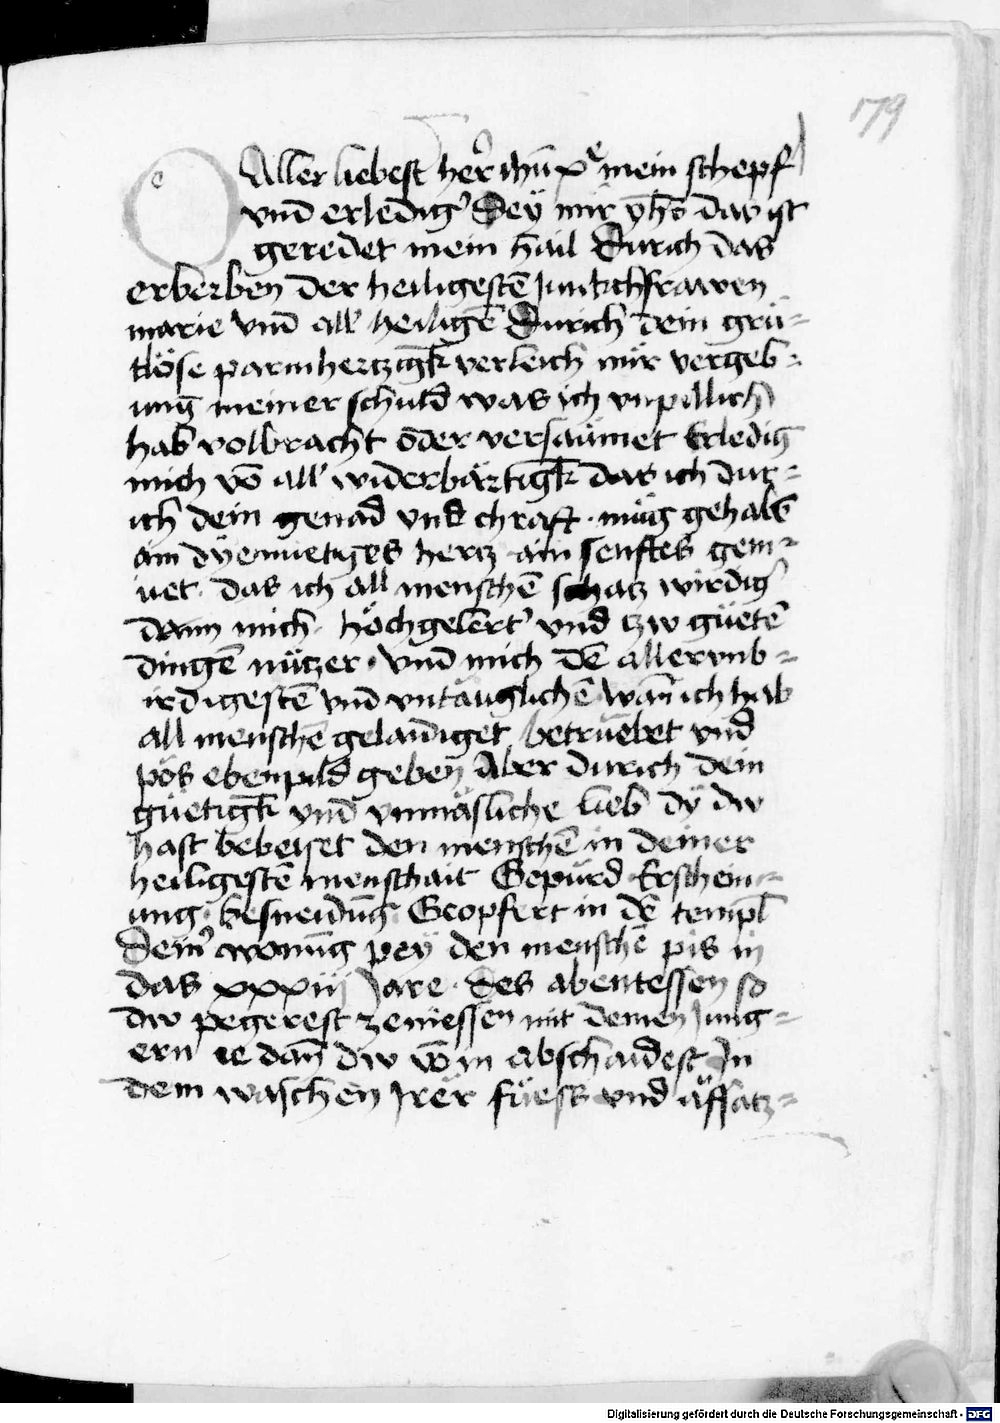 179
O Aller liebest her̄ ihū xᵉ mein schepf
vnd erledig' Sey mir yh̄s dar ist
geredet mein hail Durich das
erberben der heiligestē Junkchfrawen
marie vnd all' heiligē Durich dein gru=
tlöse parmhertzigk̄ verleich mir vergeb=
ung meiner schuld was ich vnpillich
hab volbracht oder versaumet Erledig
mich vō all' widerbärtigk̄ das ich dur=
ich dein genad vnd chraft · müg gehabē
ain dyemietigs hertz ain senftes gem=
uet · das ich all menschē schatz wirdig'
dann mich · höchgelert' vnd tzw güetē
dingē nützer · vnd mich dē allervnb=
irdigestē vnd vntäuglichē wān ich hab
all menschē gelaidiget betruebet vnd
pös ebenpild geben Aber durich dein
güetigk̄ vnd vnmäsliche lieb dÿ dw
hast bebeiset den menschē in deiner
heiligestē menschait Gepurd Erschein=
ung · besneidūg Geopfert in dē templ
Deim' wonūg pey den menschē pis in
das xxxiij Jare · Des abentessen so
dw pegerest ze niessen mit deinen Jung=
ern ie dan̄ dw vō in abschaidest In
dem waschen Jrer füess vnd aüffsatz=
Digitalisierung gefördert durch die Deutsche Forschungsgemeinschaft - DFG